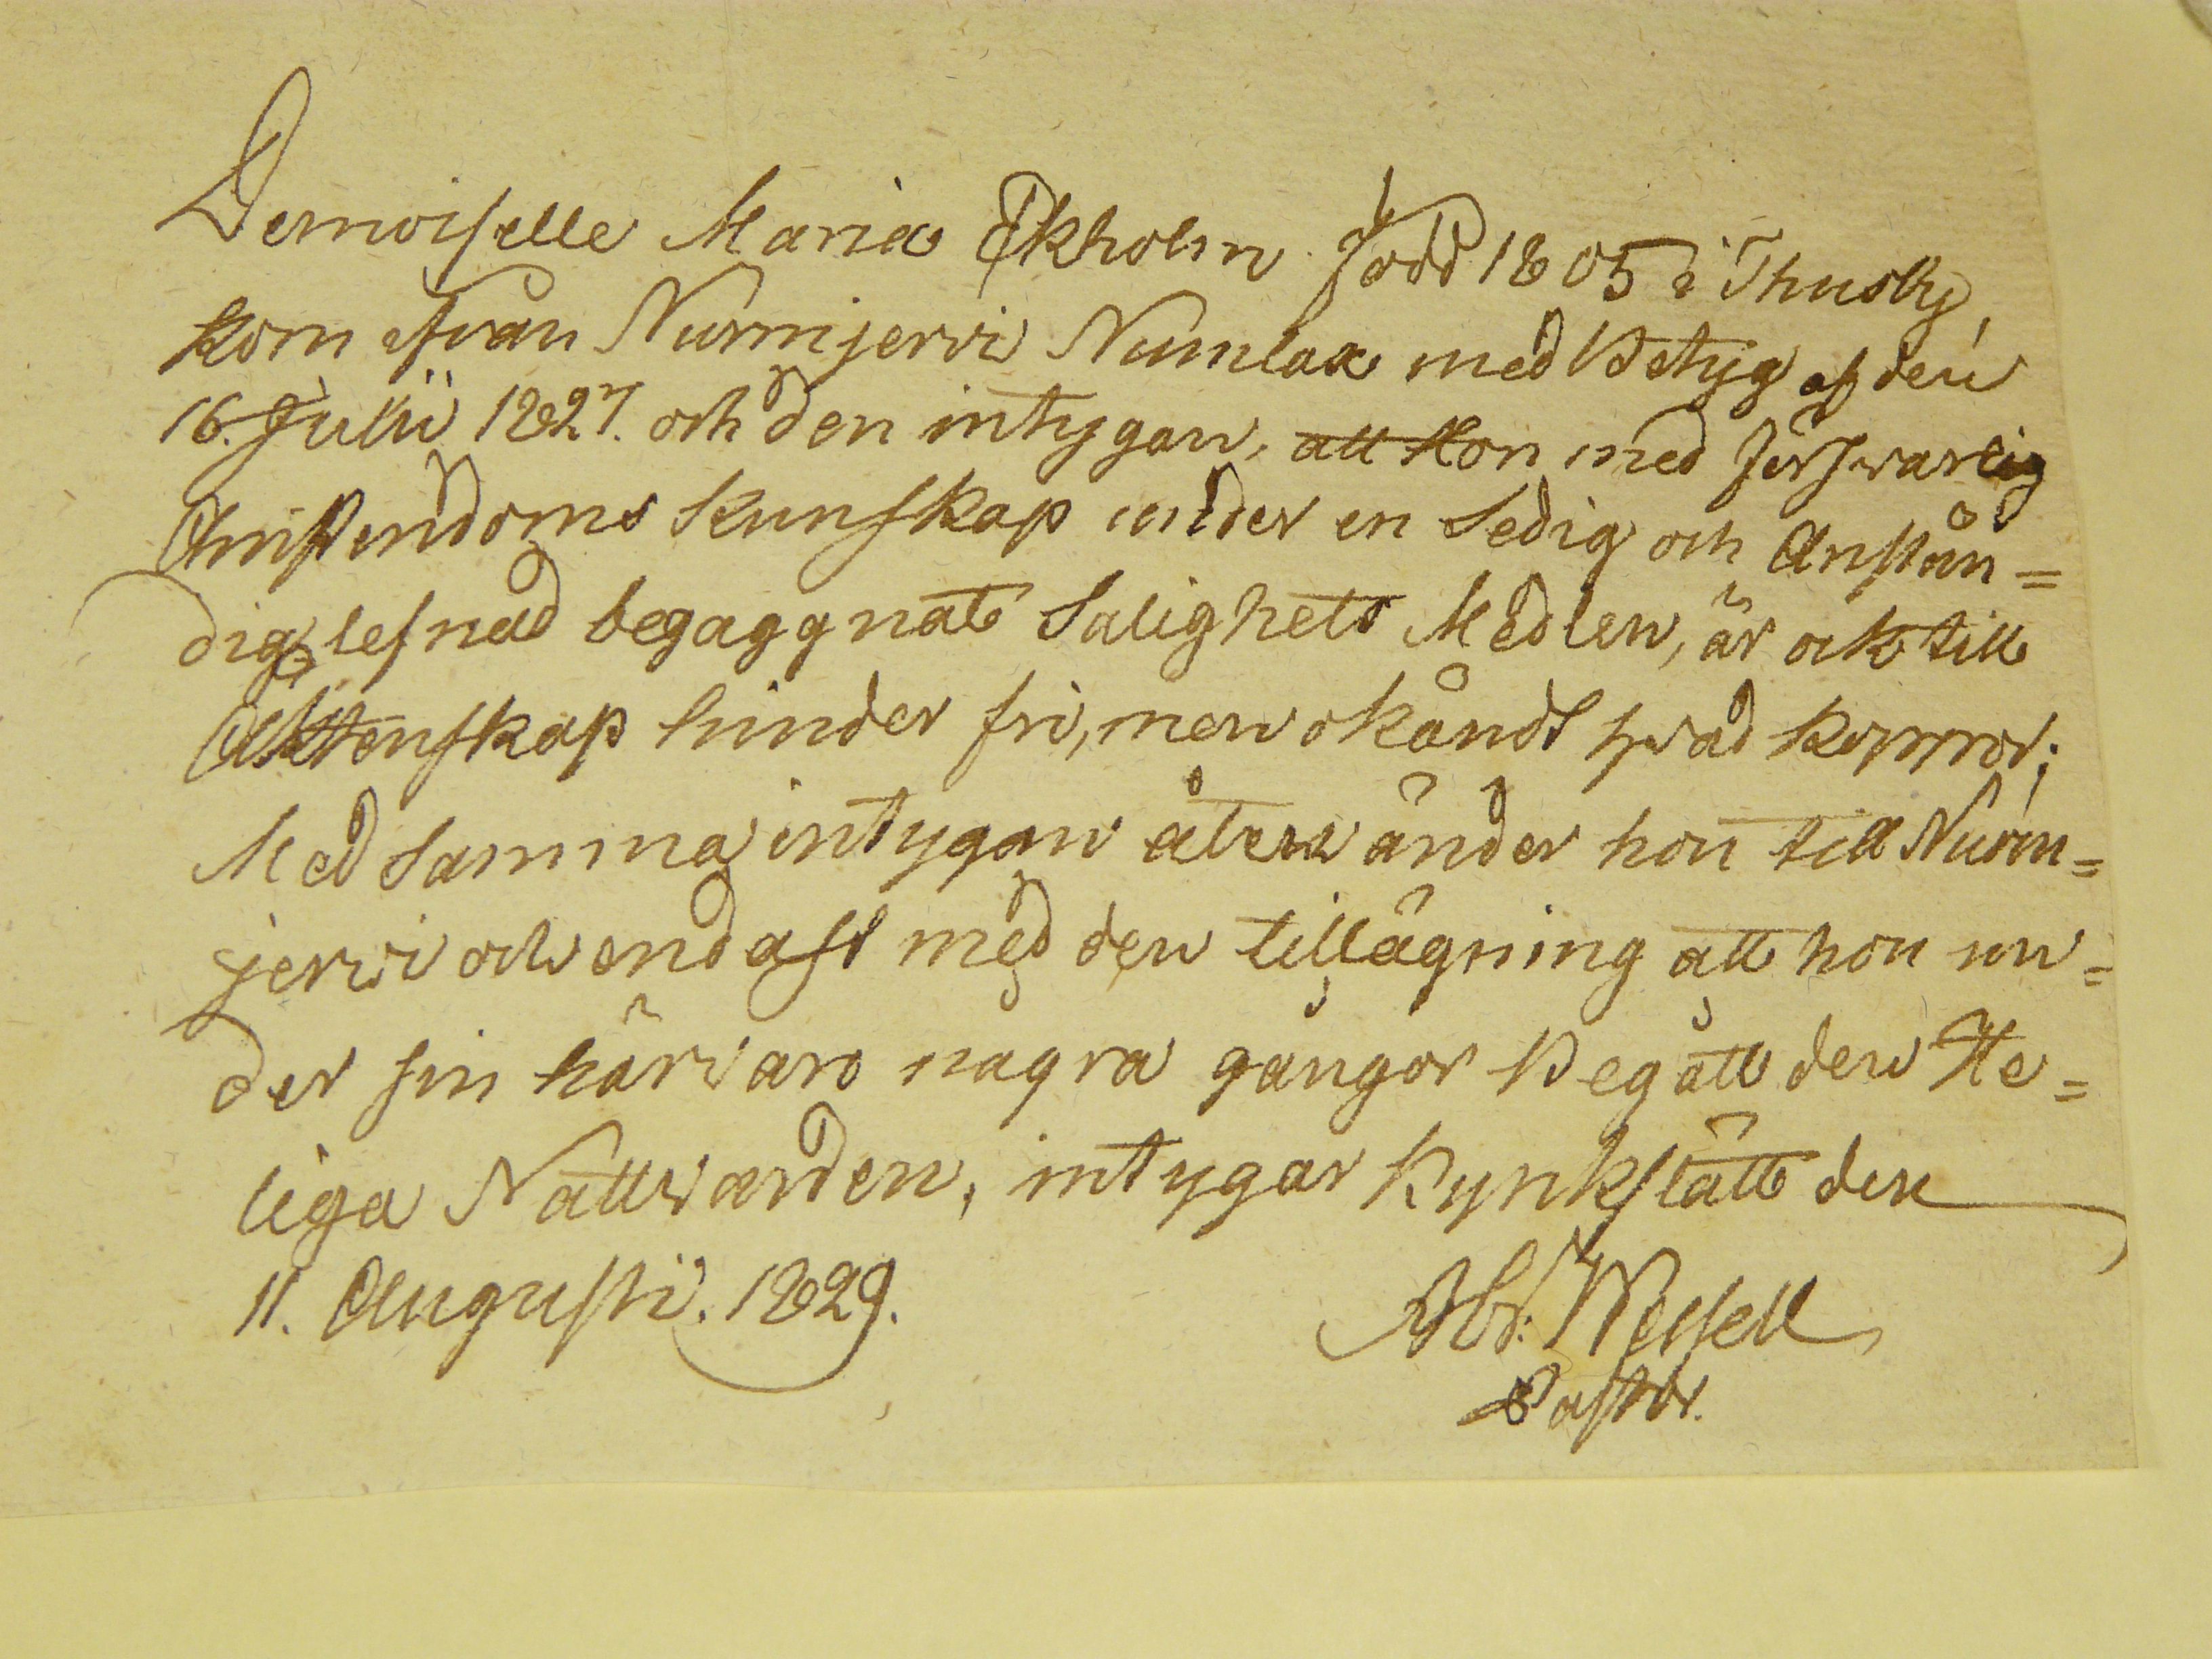 Demoiselle Maria Ekholm född 1805 i Thusby,
kom ifrån Nurmijervi Numlax med Betyg af den
16. Julii 1827. och den intygan, att Hon med försvarlig
Christendoms Kunskap under en Sedig och Anstän=
dig lefnad begaggnat Salighets Medlen, är ock till
Äktenskap hinder fri, men okändt hvad koppor;
Med Samma intygan återvänder hon till Nurm=
jervi och endast med den tillägning att hon un=
der sin härvaro några gångor Begått den He=
liga Nattvarden, intygar Kyrkslätt den
11. Augusti. 1829.
Abr: Wessell
Pastor.